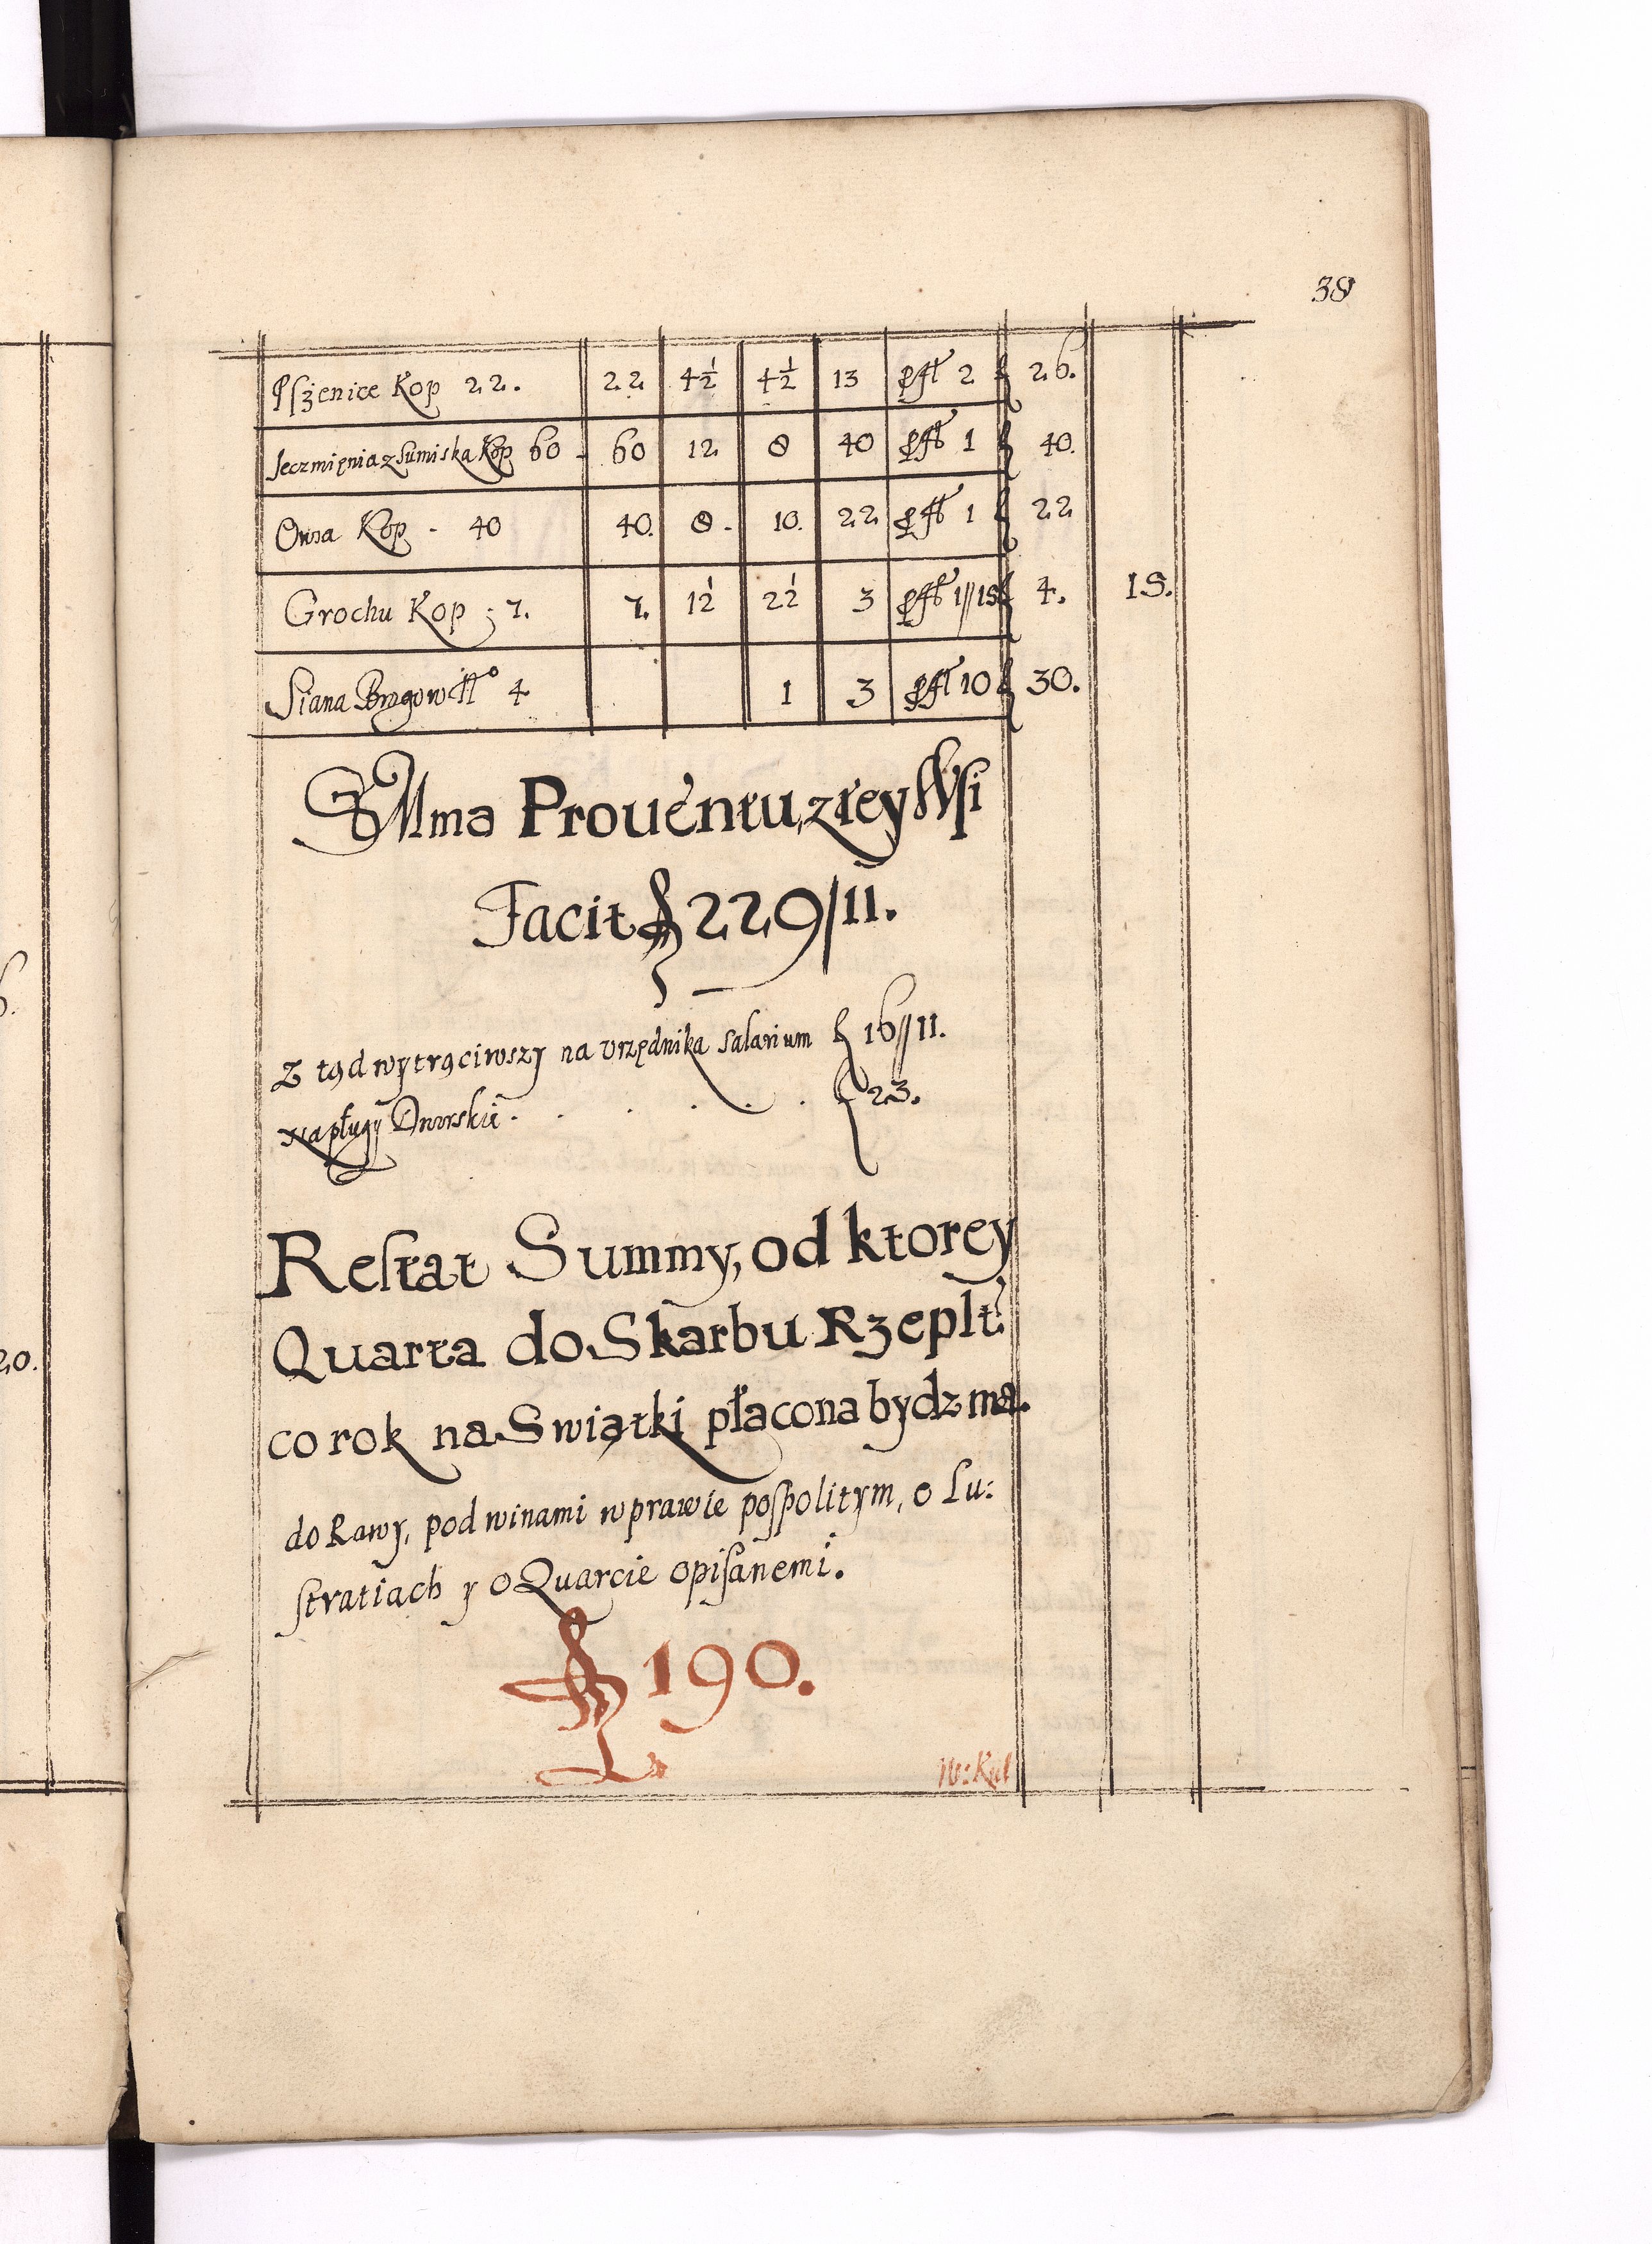 38
Pszenice Kop 22. 22 4½ 4½ 13 pfł 2 f 26.
Jeczmięnia z Sumiska Kop 60 60 12 8 40 pfł 1 f 40.
Owsa Kop 40 40. 8. 10. 22 pfł 1 f 22
Grochu Kop 7. 7. 1½ 2½ 3 pfł 1//15 f 4. 15.
Siana Brogow No 4 1 3 pfł 10 f 30.
Summa Prouentu, z tey Wsi
Facit f 229/11.
Z tąd wytrąciwszy na vrzędnika salarium f 16//11.
Na pługy Dworskie . . . . . f 23.
Restat Summy, od ktorey
Quarta do Skarbu Rzeplt
co rok na Swiątki płacona bydz ma.
do Rawy, pod winami w prawie pospolitym, o Lu:
stratiach y o Quarcie opisanemi.
f 190.
20.